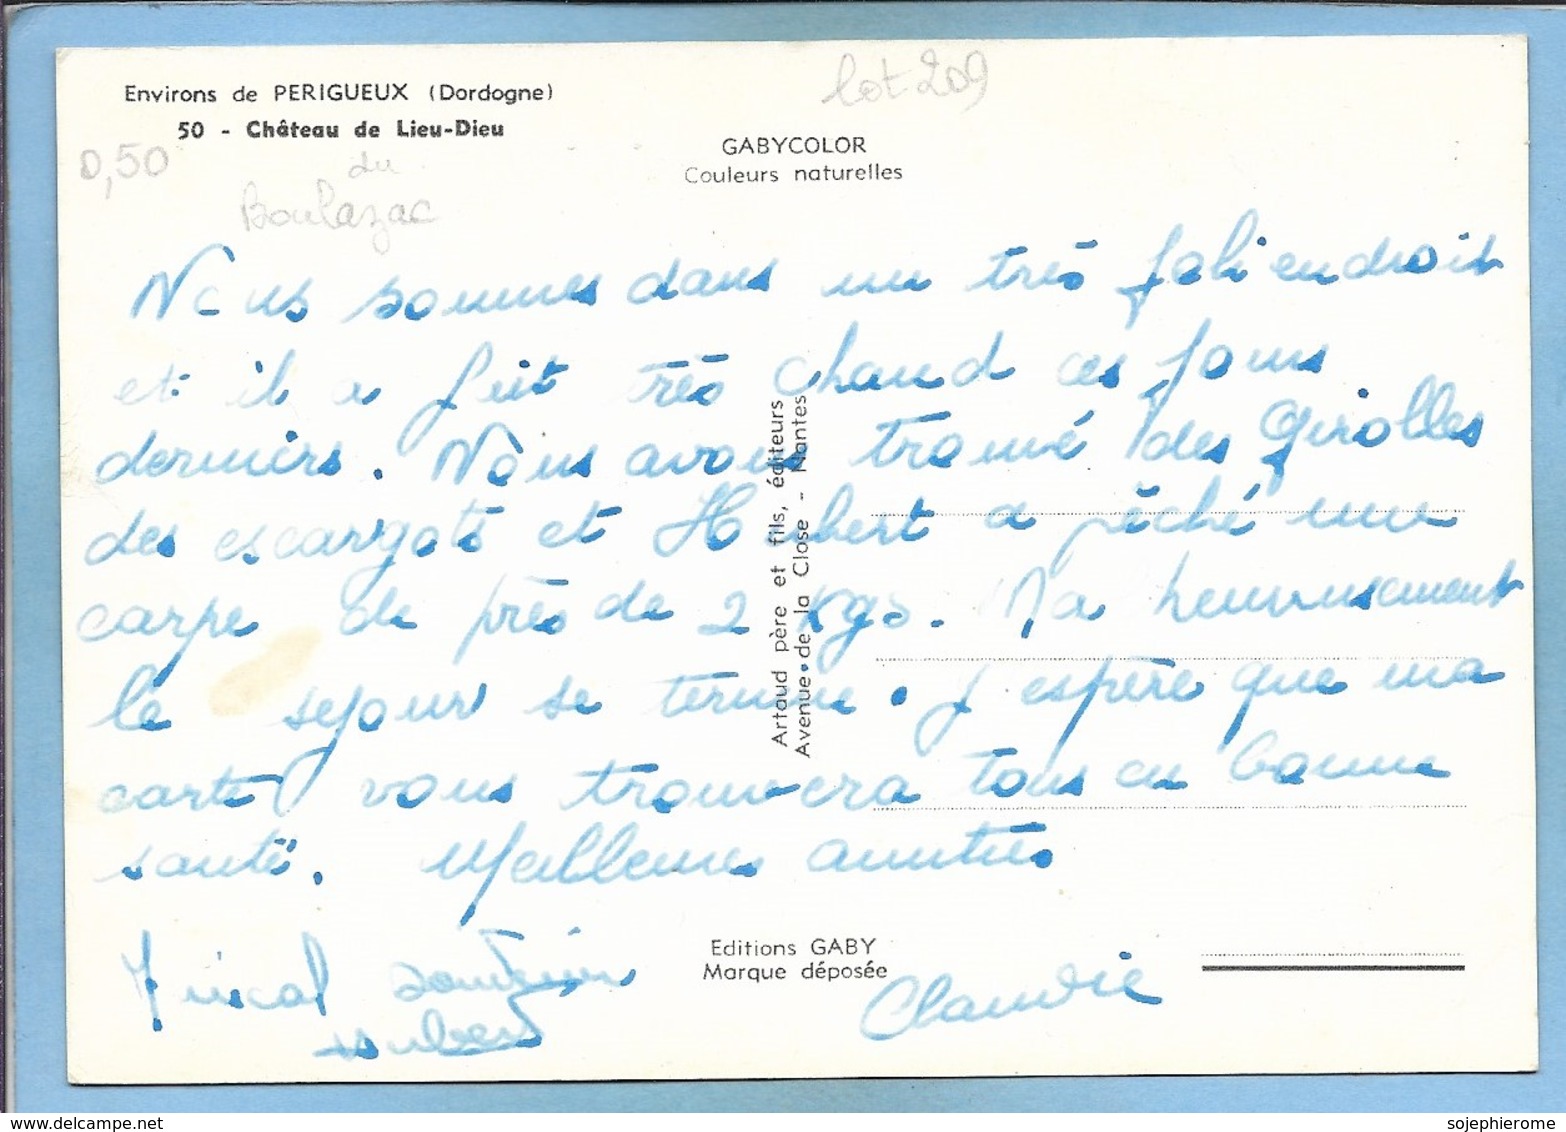 Environs de PERIGUEUX (Dordogne)
50 - Château de Lieu-Dieu
0,50
du
Boulazac
lot 209
GABYCOLOR
Couleurs naturelles
Nous sommes dans un très joli endroit
et il a fait très chaud ces jours
derniers. Nous avons trouvé des girolles
des escargots et Hubert a pêché une
carpe de près de 2 kgs. Malheureusement
le séjour se termine. J'espère que ma
carte vous trouvera tous en bonne
santé. Meilleures amitiés
Pascal
Hubert
Claudie
Artaud père et fils, éditeurs
Avenue de la Close - Nantes
Editions GABY
Marque déposée
www.delcampe.net
sojephierome